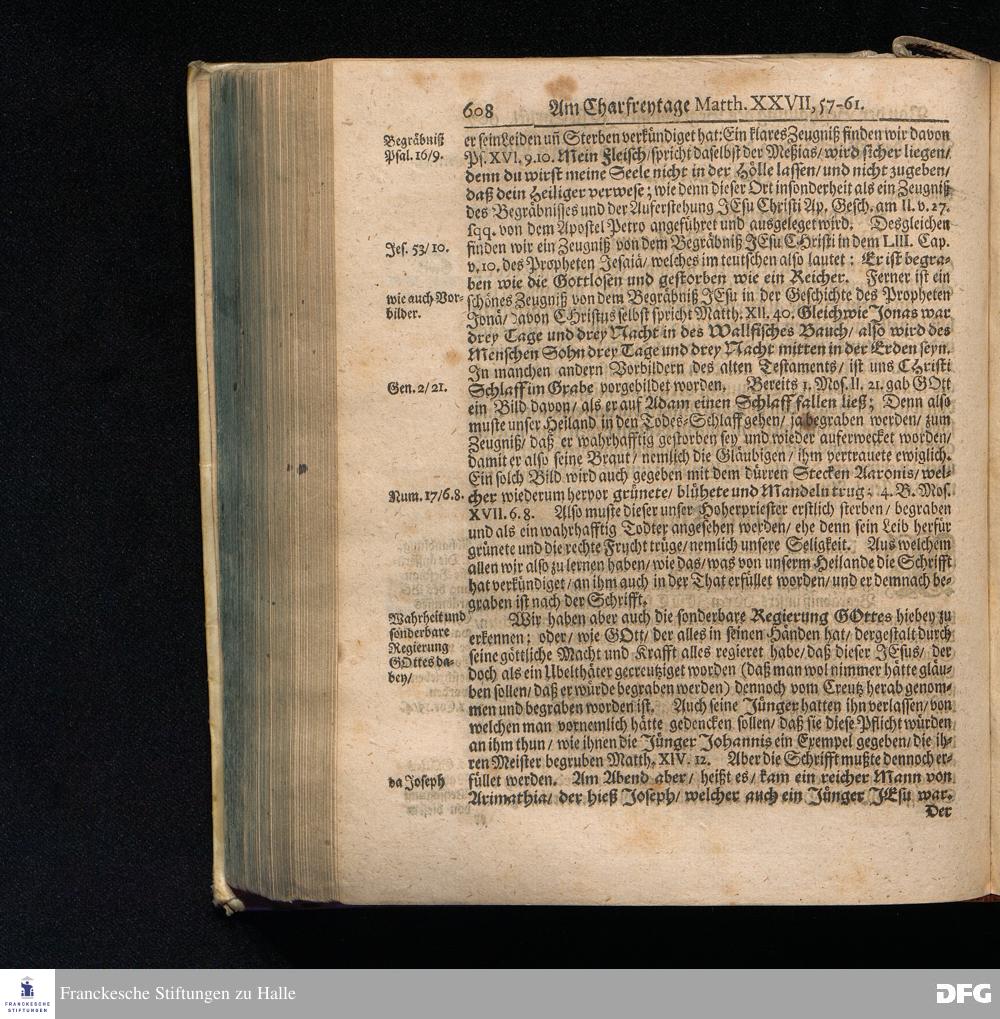 608 Am Charfreytage Matth. XXVII, 57-61.
Begräbniß
Psal. 16/9.
er sein Leiden uñ Sterben verkündiget hat: Ein klares Zeugniß finden wir davon
Ps. XVI. 9. 10. Mein Fleisch/ spricht daselbst der Meßias/ wird sicher liegen/
denn du wirst meine Seele nicht in der Hölle lassen/ und nicht zugeben/
daß dein Heiliger verwese; wie denn dieser Ort insonderheit als ein Zeugniß
des Begräbnisses und der Auferstehung JEsu Christi Ap. Gesch. am II. v. 27.
sqq. von dem Apostel Petro angeführet und ausgeleget wird. Desgleichen
Jes. 53/10.
finden wir ein Zeugniß von dem Begräbniß JEsu CHristi in dem LIII. Cap.
v. 10. des Propheten Jesaiä/ welches im teutschen also lautet: Er ist begra-
ben wie die Gottlosen und gestorben wie ein Reicher. Ferner ist ein
wie auch Vor-
bilder.
schönes Zeugniß von dem Begräbniß JEsu in der Geschichte des Propheten
Jonä/ davon CHristus selbst spricht Matth. XII. 40. Gleichwie Jonas war
drey Tage und drey Nacht in des Wallfisches Bauch/ also wird des
Menschen Sohn drey Tage und drey Nacht mitten in der Erden seyn.
In manchen andern Vorbildern des alten Testaments/ ist uns CHristi
Gen. 2/21.
Schlaff im Grabe vorgebildet worden. Bereits 1. Mos. II. 21. gab GOtt
ein Bild davon/ als er auf Adam einen Schlaff fallen ließ; Denn also
muste unser Heiland in den Todes-Schlaff gehen/ ja begraben werden/ zum
Zeugniß/ daß er wahrhafftig gestorben sey und wieder auferwecket worden/
damit er also seine Braut/ nemlich die Gläubigen/ ihm vertrauete ewiglich.
Ein solch Bild wird auch gegeben mit dem dürren Stecken Aaronis/ wel-
Num. 17/6.8.
cher wiederum hervor grünete/ blühete und Mandeln trug: 4. B. Mos.
XVII. 6. 8. Also muste dieser unser Hoherpriester erstlich sterben/ begraben
und als ein wahrhafftig Todter angesehen werden/ ehe denn sein Leib herfür
grünete und die rechte Frucht trüge/ nemlich unsere Seligkeit. Aus welchem
allen wir also zu lernen haben/ wie das/ was von unserm Heilande die Schrifft
hat verkündiget/ an ihm auch in der That erfüllet worden/ und er demnach be-
graben ist nach der Schrifft.
Wahrheit und
sonderbare
Regierung
GOttes da-
bey/
Wir haben aber auch die sonderbare Regierung GOttes hiebey zu
erkennen; oder/ wie GOtt/ der alles in seinen Händen hat/ dergestalt durch
seine göttliche Macht und Krafft alles regieret habe/ daß dieser JEsus/ der
doch als ein Ubelthäter gecreutziget worden (daß man wol nimmer hätte gläu-
ben sollen/ daß er würde begraben werden) dennoch vom Creutz herab genom-
men und begraben worden ist. Auch seine Jünger hatten ihn verlassen/ von
welchen man vornemlich hätte gedencken sollen/ daß sie diese Pflicht würden
an ihm thun/ wie ihnen die Jünger Johannis ein Exempel gegeben/ die ih-
ren Meister begruben Matth. XIV. 12. Aber die Schrifft mußte dennoch er-
da Joseph
füllet werden. Am Abend aber/ heißt es/ kam ein reicher Mann von
Arimathia/ der hieß Joseph/ welcher auch ein Jünger JEsu war.
Der
FRANCKESCHE
STIFTUNGEN
Franckesche Stiftungen zu Halle
DFG